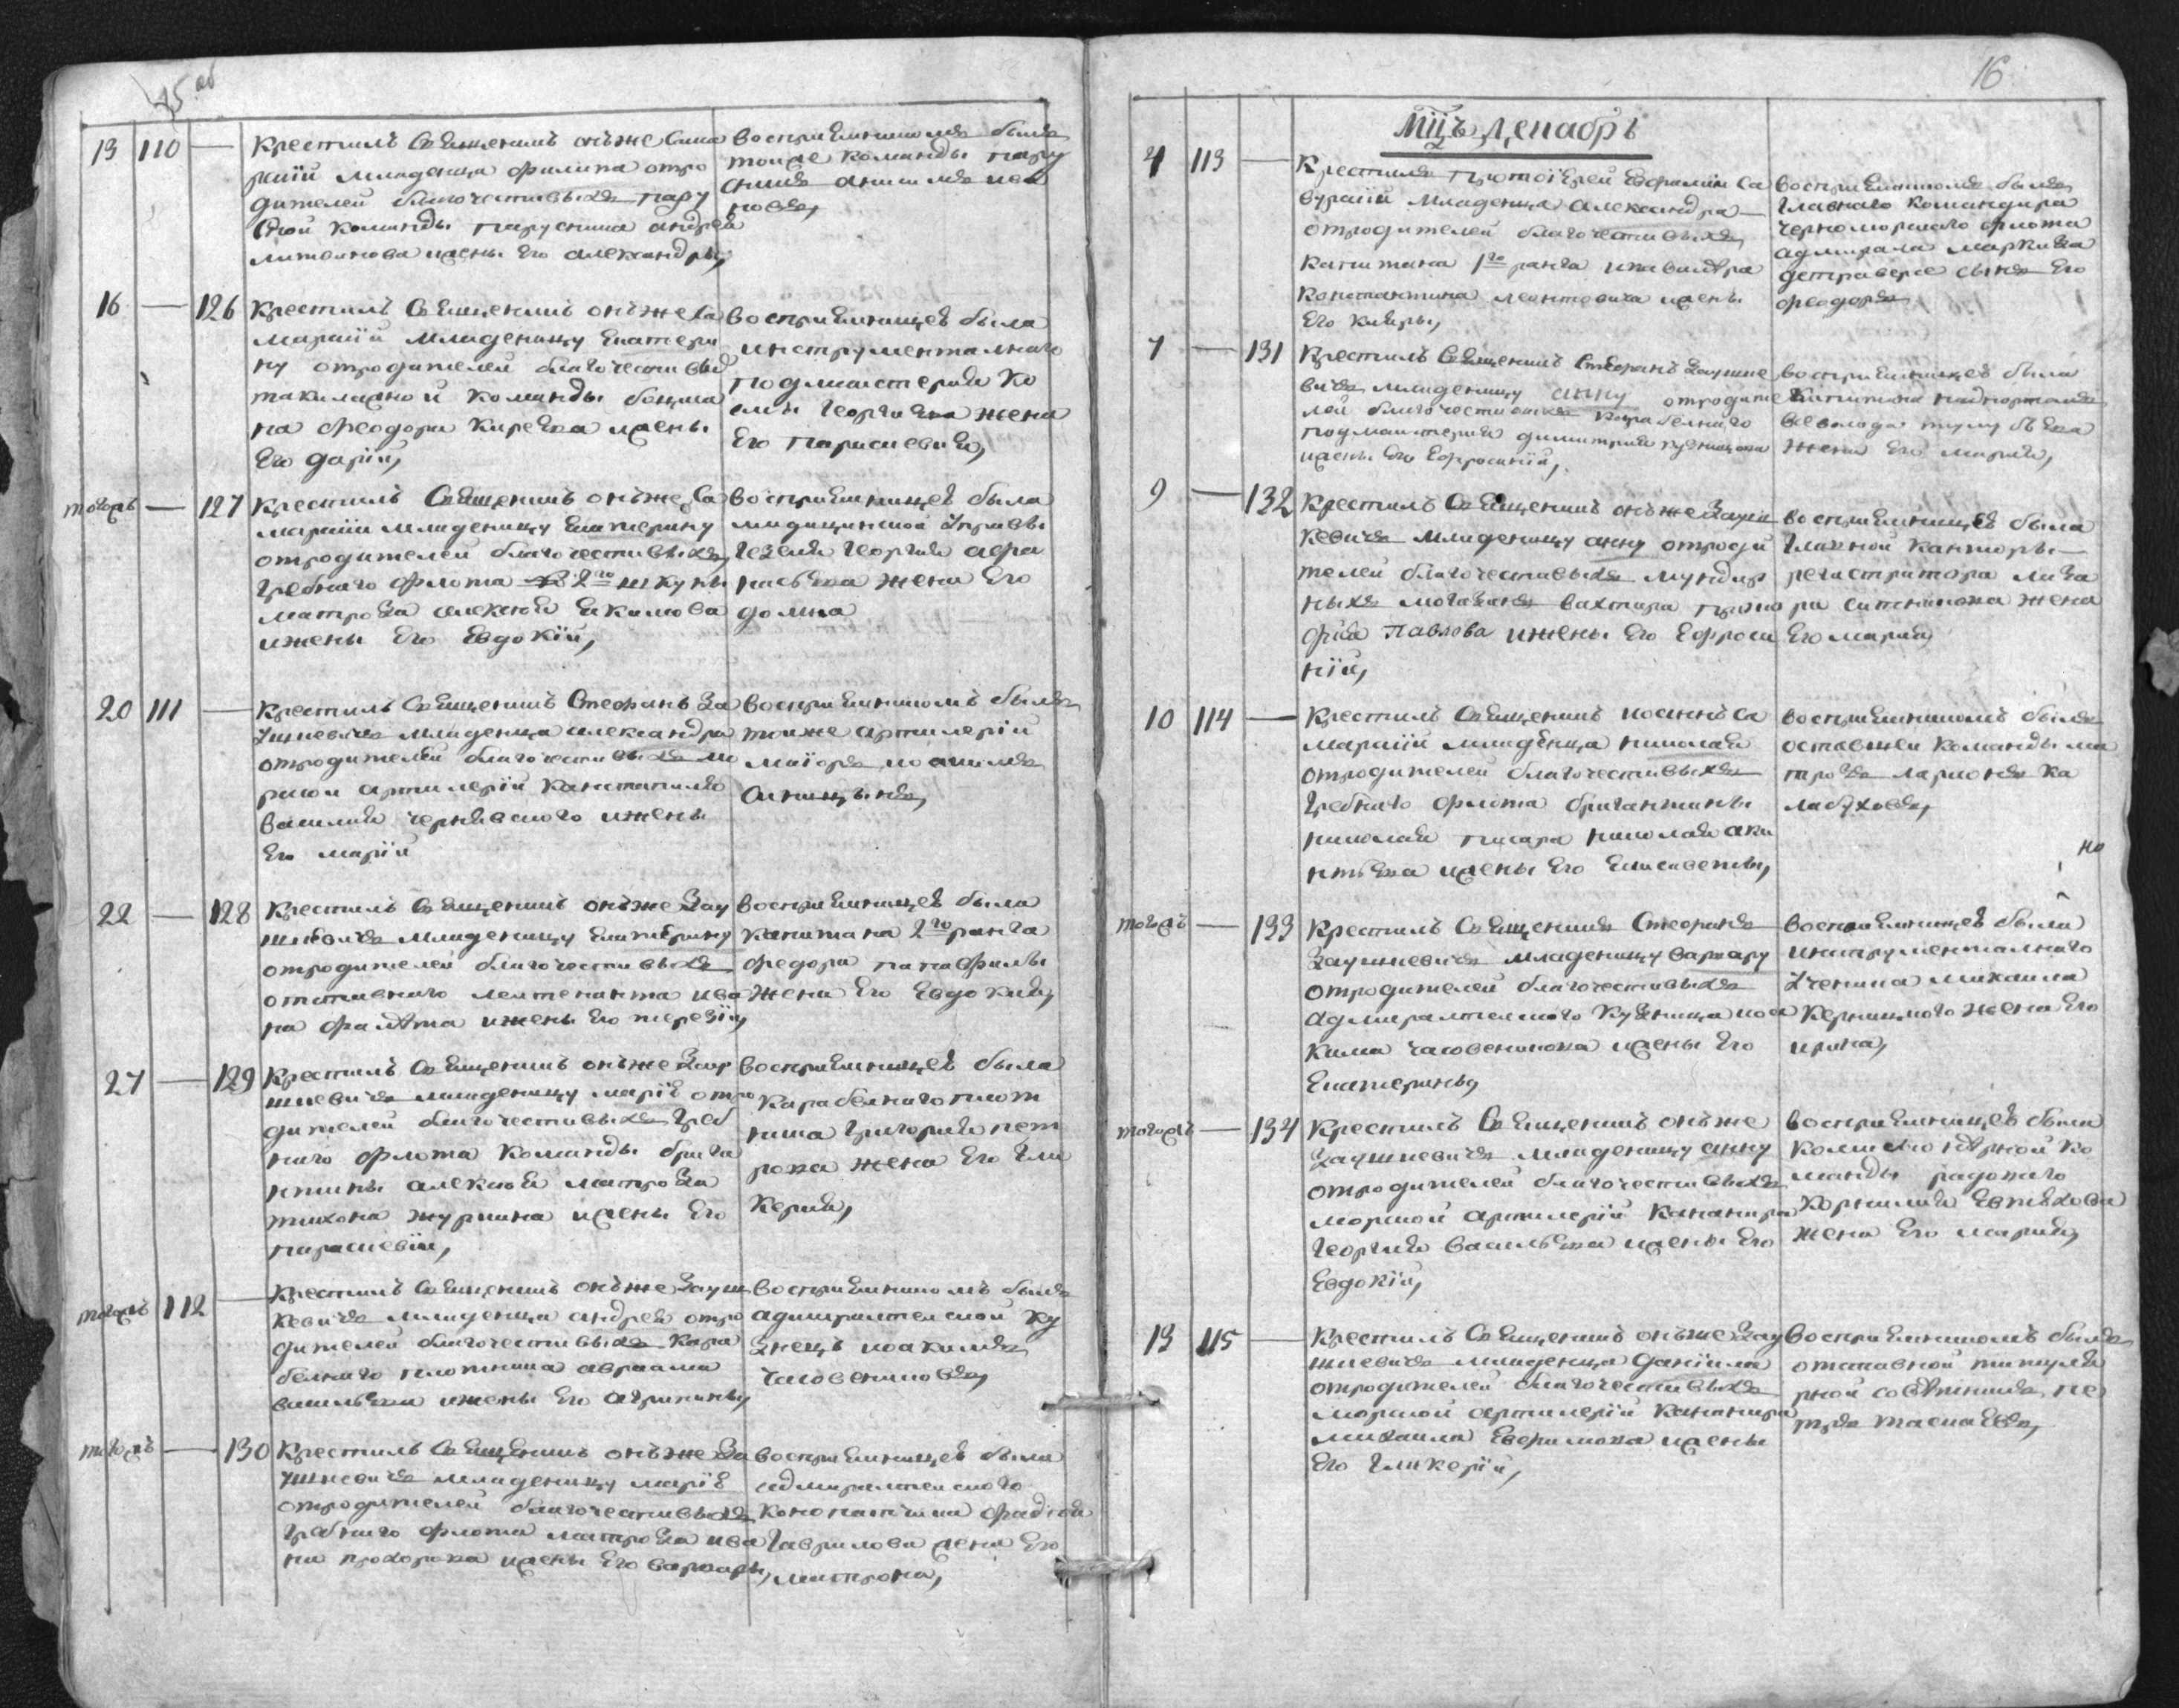 15 об
13 110 — Крестилъ Священникъ онъже Сама
рскій младенца филипа отро
дителей благочестивыхъ пару
сной команды парусника андрея
литвинова ижены Его александры,
восприемникомъ былъ
тойже команды пару
сникъ
повъ,
16 — 126 Крестилъ Священникъ онъже Са
марскій младеницу Екатери
ну отродителей благочестивых
такилажной команды боцма
на феодора Кирѣева ижены
Его дарій,
восприемницей была
инструментальнаго
подмастерья Ко
Георгиева жена
Его Параскевия,
тогожъ — 127 Крестилъ Священникъ онъже Са
марскій младеницу Екатерину
отродителей благочестивыхъ
гребнаго флота 2го шкуны
матроза алексея Екимова
ижены Его Евдокій,
восприемницей была
медицинской Управы
Георгия афа
насьева жена Его
домна
20 111 — Крестилъ Священникъ Стефанъ За
ушкевичъ младенца александра
отродителей благочестивыхъ мо
рской артилеріи Констапеля
василия чернявского ижены
Его маріи
восприемникомъ былъ
тоиже артилеріи
маіоръ иоакимъ
22 — 128 Крестилъ Священникъ онъже Зау
шкевичъ младеницу Екатерину
отродителей благочестивыхъ
отставного лейтенанта ива
на ижены Его терезіи,
восприемницей была
капитана 2го ранга
федора папафилы
жена Его Евдокия,
27 — 129 Крестилъ Священникъ онъже Зау
шкевичъ младеницу марію отро
дителей благочестивыхъ греб
наго флота Команды брига
нтины алексея матроза
тихона журкина ижены Его
параскевіи,
восприемницей была
карабелнаго плот
ника григория пет
рова жена Его гли
керия,
тогожъ 112 — Крестилъ Священникъ онъже Зауш
кевичъ младенца андрея отро
дителей благочестивыхъ Кара
белнаго плотника авраама
васильева ижены Его агрипины,
восприемникомъ былъ
адмиралтейской ку
знецъ иоакимъ
Часовениковъ,
тогожъ — 130 Крестилъ Священникъ онъже За
ушкевичъ младеницу марію
отродителей благочестивыхъ
гребнаго флота матроза ива
на прохорова ижены Его варвары,
восприемницей была
адмиралтейского
конопатчика фадѣя
гаврилова жена Его
матрона,
16
Мцъ декабрь
4 113 — Крестилъ протоіерей Ефремій Са
вурскій младенца александра
отродителей благочестивыхъ
капитана 1го ранга икавалера
Константина леонтовича ижены
Его Киры,
восприемникомъ былъ
главнаго командира
черноморскаго флота
адмирала маркиза
детраверсе сынъ Его
феодоръ
7 — 131 Крестилъ Священникъ Стефанъ Заушке
вичъ младеницу анну отродите
лей благочестивыхъ Карабелнаго
подмастерья димитрия Кузнецова
ижены Его Ефросиніи,
восприемницей была
Капитана надпортомъ
всеволода
жена Его мария,
9 — 132 Крестилъ Священникъ онъже Зауш
кевичъ младеницу анну отроди
телей благочестивыхъ мундир
ныхъ могазинъ вахтера проко
фия Павлова ижены Его Ефроси
ніи,
восприемницей была
главной канторы
регистратора лаза
ря ситникова жена
Его мария,
10 114 — Крестилъ Священникъ иоаннъ Са
марскій младенца николая
отродителей благочестивыхъ
гребнаго флота бригантины
николай писаря николая аки
нтьева ижены Его Елисаветы,
восприемникомъ былъ
команды ма
трозъ ларионъ Ка
лабуховъ,
но
тогожъ — 133 Крестилъ Священникъ Стефанъ
Заушкевичъ младеницу варвару
отродителей благочестивыхъ
адмиралтейского Кузнеца иоа
кима часовеникова ижены Его
Екатерины,
восприемницей была
инструменталнаго
Ученика михаила
Керницкого жена Его
ирина,
тогожъ — 134 Крестилъ Священникъ онъже
Заушкевичъ младеницу анну
отродителей благочестивыхъ
морской артилеріи Канонира
Георгия васильева ижены Его
Евдокіи,
восприемницей была
ко
манды радоваго
Корнилия Евтихова
жена Его мария,
13 115 — Крестилъ Священникъ онъже Зау
шкевичъ младенца Даніила
отродителей благочестивыхъ
морской артилеріи Канонира
михаила Ефимова ижены
Его гликеріи,
восприемникомъ былъ
отставной титуля
рной совѣтникъ, пе
тръ